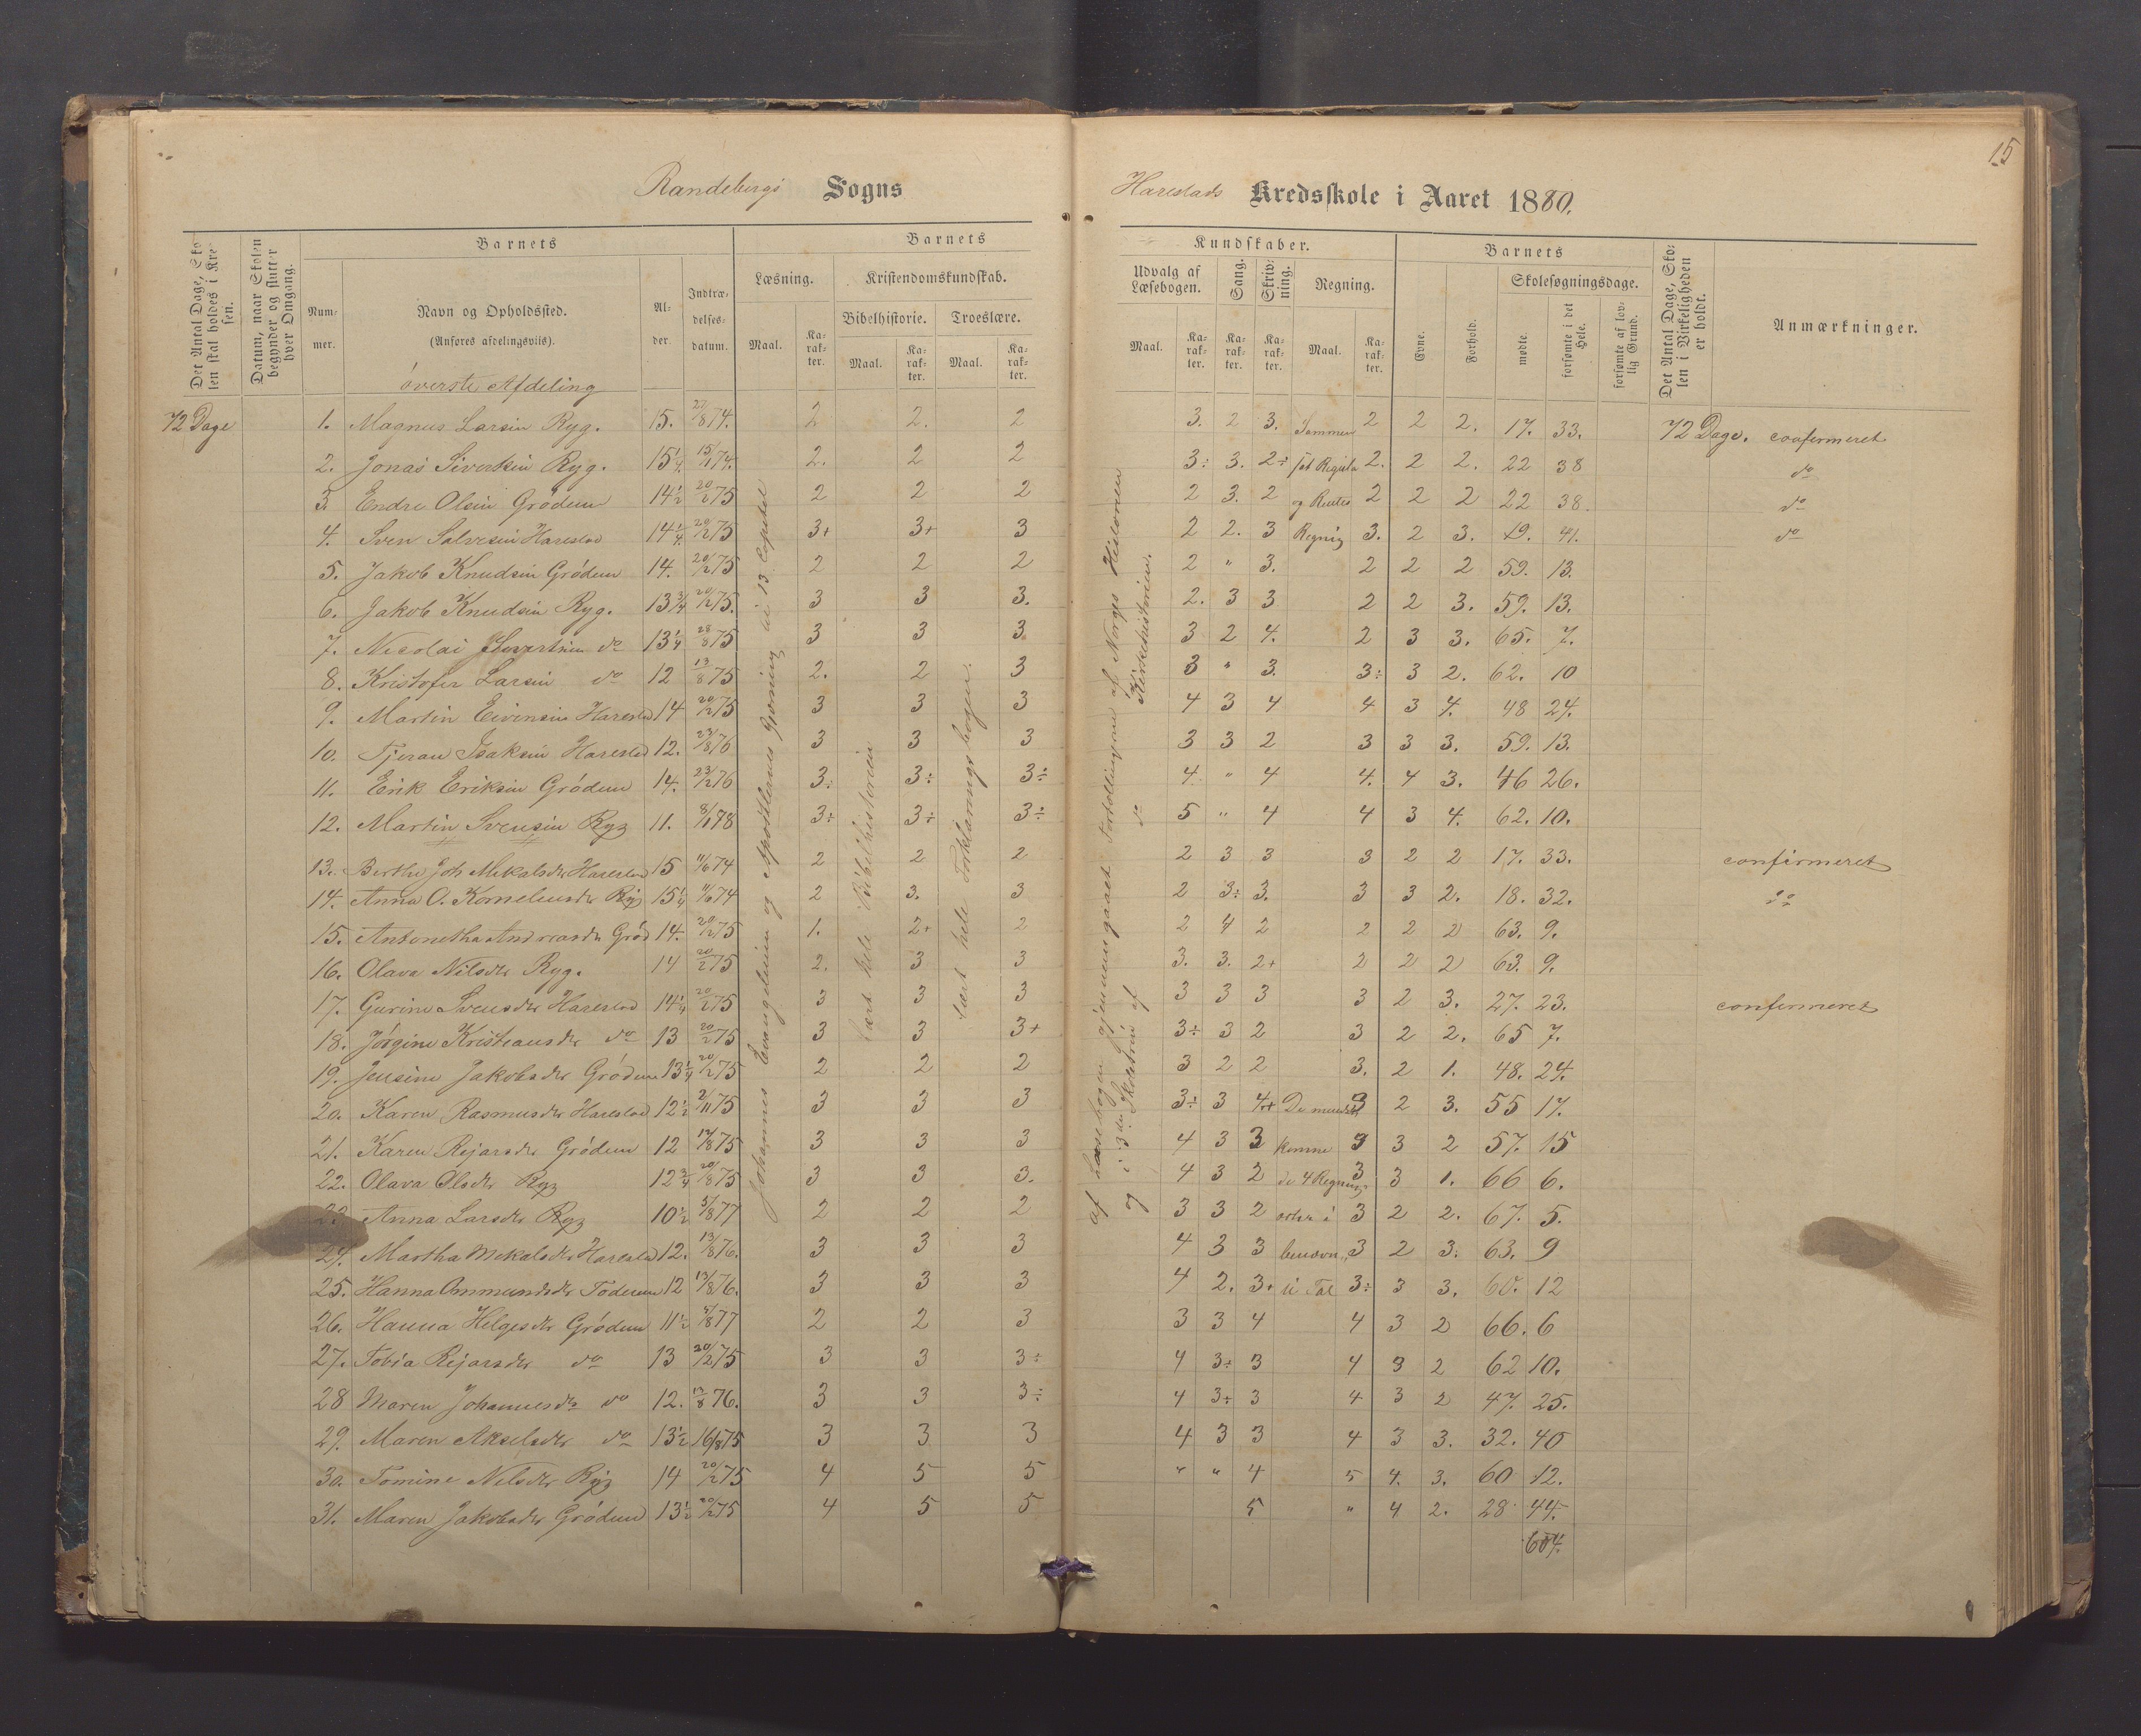 15
Randebergs Sogns Harestads Kredsskole i Aaret 1880.
Det Antal Dage, Skolen skal holdes i Kredsen.
Datum, naar Skolen begynder og slutter hver Omgang.
Barnets
Nummer.
Navn og Opholdssted.
(Anføres afdelingsvis).
Alder.
Indtrædelsesdatum.
Barnets Kundskaber.
Læsning.
Maal.
Karakter.
Kristendomskundskab.
Bibelhistorie.
Maal.
Karakter.
Troeslære.
Maal.
Karakter.
Udvalg af Læsebogen.
Maal.
Karakter.
Sang.
Karakter.
Skrivning.
Karakter.
Regning.
Maal.
Karakter.
Barnets
Evne.
Forhold.
Skolesøgningsdage.
mødte.
forsømte i det Hele.
forsømte af lovlig Grund.
Det Antal Dage, Skolen i Virkeligheden er holdt.
Anmærkninger.
øverste Afdeling
72 Dage 1. Magnus Larsen Ryg. 15. 27/8 74. 2 2. 2 3. 2 3. Sammen 2 2 2. 17. 33. 72 Dage. confirmeret
2. Jonas Sivertsen Ryg. 15 1/4 15/11 74. 2. 2 2 3÷ 3. 2÷ sat Regula 2. 2 2. 22 38 do
3. Endre Olsen Grødem 14 1/2 20/2 75 2 2 2 2 3. 2 og Rentes 2 2 2 22 38. do
4. Sven Salvesen Harestad 14 1/4 20/2 75 3+ 3+ 3 2 2. 3 Regnig 3. 2 3. 19. 41. do
5. Jakob Knudsen Grødem 14. 20/2 75 2 2 2 2 " 3. 2 2 2 59. 13.
6. Jakob Knudsen Ryg. 13 3/4 20/2 75. 3 3 3. 2. 3 3 2 2 3. 59. 13.
7. Nicolai Sivertsen do 13 1/4 28/8 75 3 3 3 3 2 4. 2 3 3. 65. 7.
8. Kristofer Larsen do 12 13/8 75 2. 2 3 3 " 3. 3÷ 3 2. 62. 10
9. Martin Eivensen Harestad 14 20/2 75 3 3 3 4 3 4 4 3 4. 48 24.
10. Tjeran Isaksen Harestad 12. 23/8 76 3 3 3 3 3 2 3 3 3. 59. 13.
11. Erik Eriksen Grødem 14. 23/2 76 3÷ 3÷ 3÷ 4 " 4 4. 4 3. 46 26.
12. Martin Svensen Ryg 11. 8/1 78 3÷ 3÷ 3÷ do 5 " 4 4 3 4. 62. 10.
13. Berthe Joh Mikalsdtr Harestad 15 11/6 74 2 2 2 2 3 3 3 2 2 17. 33. confirmeret
14. Anna O. Korneliusdtr Ryg 15 1/4 11/6 74 2 3. 3 2 3÷ 3. 3 3 2. 18. 32. do
15. Antonetha Andreasdtr Grød 14. 20/2 75 1. 2+ 2 2 4 2 2 2 2 63. 9.
16. Olava Nilsdtr Ryg. 14 20/2 75 2. 3 3 3. 3. 2+ 2 2 2 63. 9.
17. Gurine Svensdtr Harestad 14 1/4 20/2 75 3 3 3 3 3 3 3 2 3. 27. 23. confirmeret
18. Jørgine Kristiansdtr do 13 20/2 75 3 3 3+ 3÷ 3 2 3 2 2. 65 7.
19. Jensine Jakobsdtr Grødem 13 1/4 20/2 75 2 2 2 3 2 2 3. 2 1. 48. 24.
20. Karen Rasmusdtr Harestad 12 1/2 2/11 75 3 3 3 3÷ 3 4+ 3 2 3. 55 17.
21. Karen Rejarsdtr Grødem 12 17/8 75 3 3 3 4 3 3 kunne 3 3 2 57. 15
22. Olava Olsdtr Ryg 12 3/4 20/8 75 3 3 3. 4 3 2 de 4 Regnings 3 3 1. 66 6.
23. Anna Larsdtr Ryg 10 1/2 5/8 77 2 2 2 3 3 2 arter i 3 2 2. 67. 5.
24. Martha Mikalsdtr Harestad 12. 13/8 76. 3 3 3 4 3 3 benævn 3 2 3. 63. 9
25. Hanna Ommundsdtr Todnem 12 13/8 76. 3 3 3 4 2. 3+ te Tal 3÷ 3 3. 60. 12
26. Hanna Helgesdtr Grødem 11 1/2 5/8 77 2 2 3 3 3 4 4 3 2 66. 6
27. Tobia Rejarsdtr do 13 20/2 75 3 3 3÷ 4 3÷ 3 4 3 2 62 10.
28 Maren Johannesdtr do 12. 13/8 76. 3 3 3÷ 4 3÷ 3 4 3 2 47. 25.
29. Maren Akselsdtr do 13 1/2 16/8 75 3 3 3 4 3 3 4 3 3. 32. 40
30. Tomine Nilsdtr Ryg 14 20/2 75 4 5 5 " " 4 5 4. 3. 60 12.
31. Maren Jakobsdtr Grødem 13 1/2 20/2 75 4 5 5 5 " 4 2. 28 44.
604.
Johannes Evangelium og Apostlenes Gjerning til 13 Capitel
Lært hele Bibelhistorien
Lært hele Forklaringsbogen.
af Læsebogen gjennemgaaet Fortællingerne af Norges Historien
og i 3die Skoletrin af do Kirkehistorien.